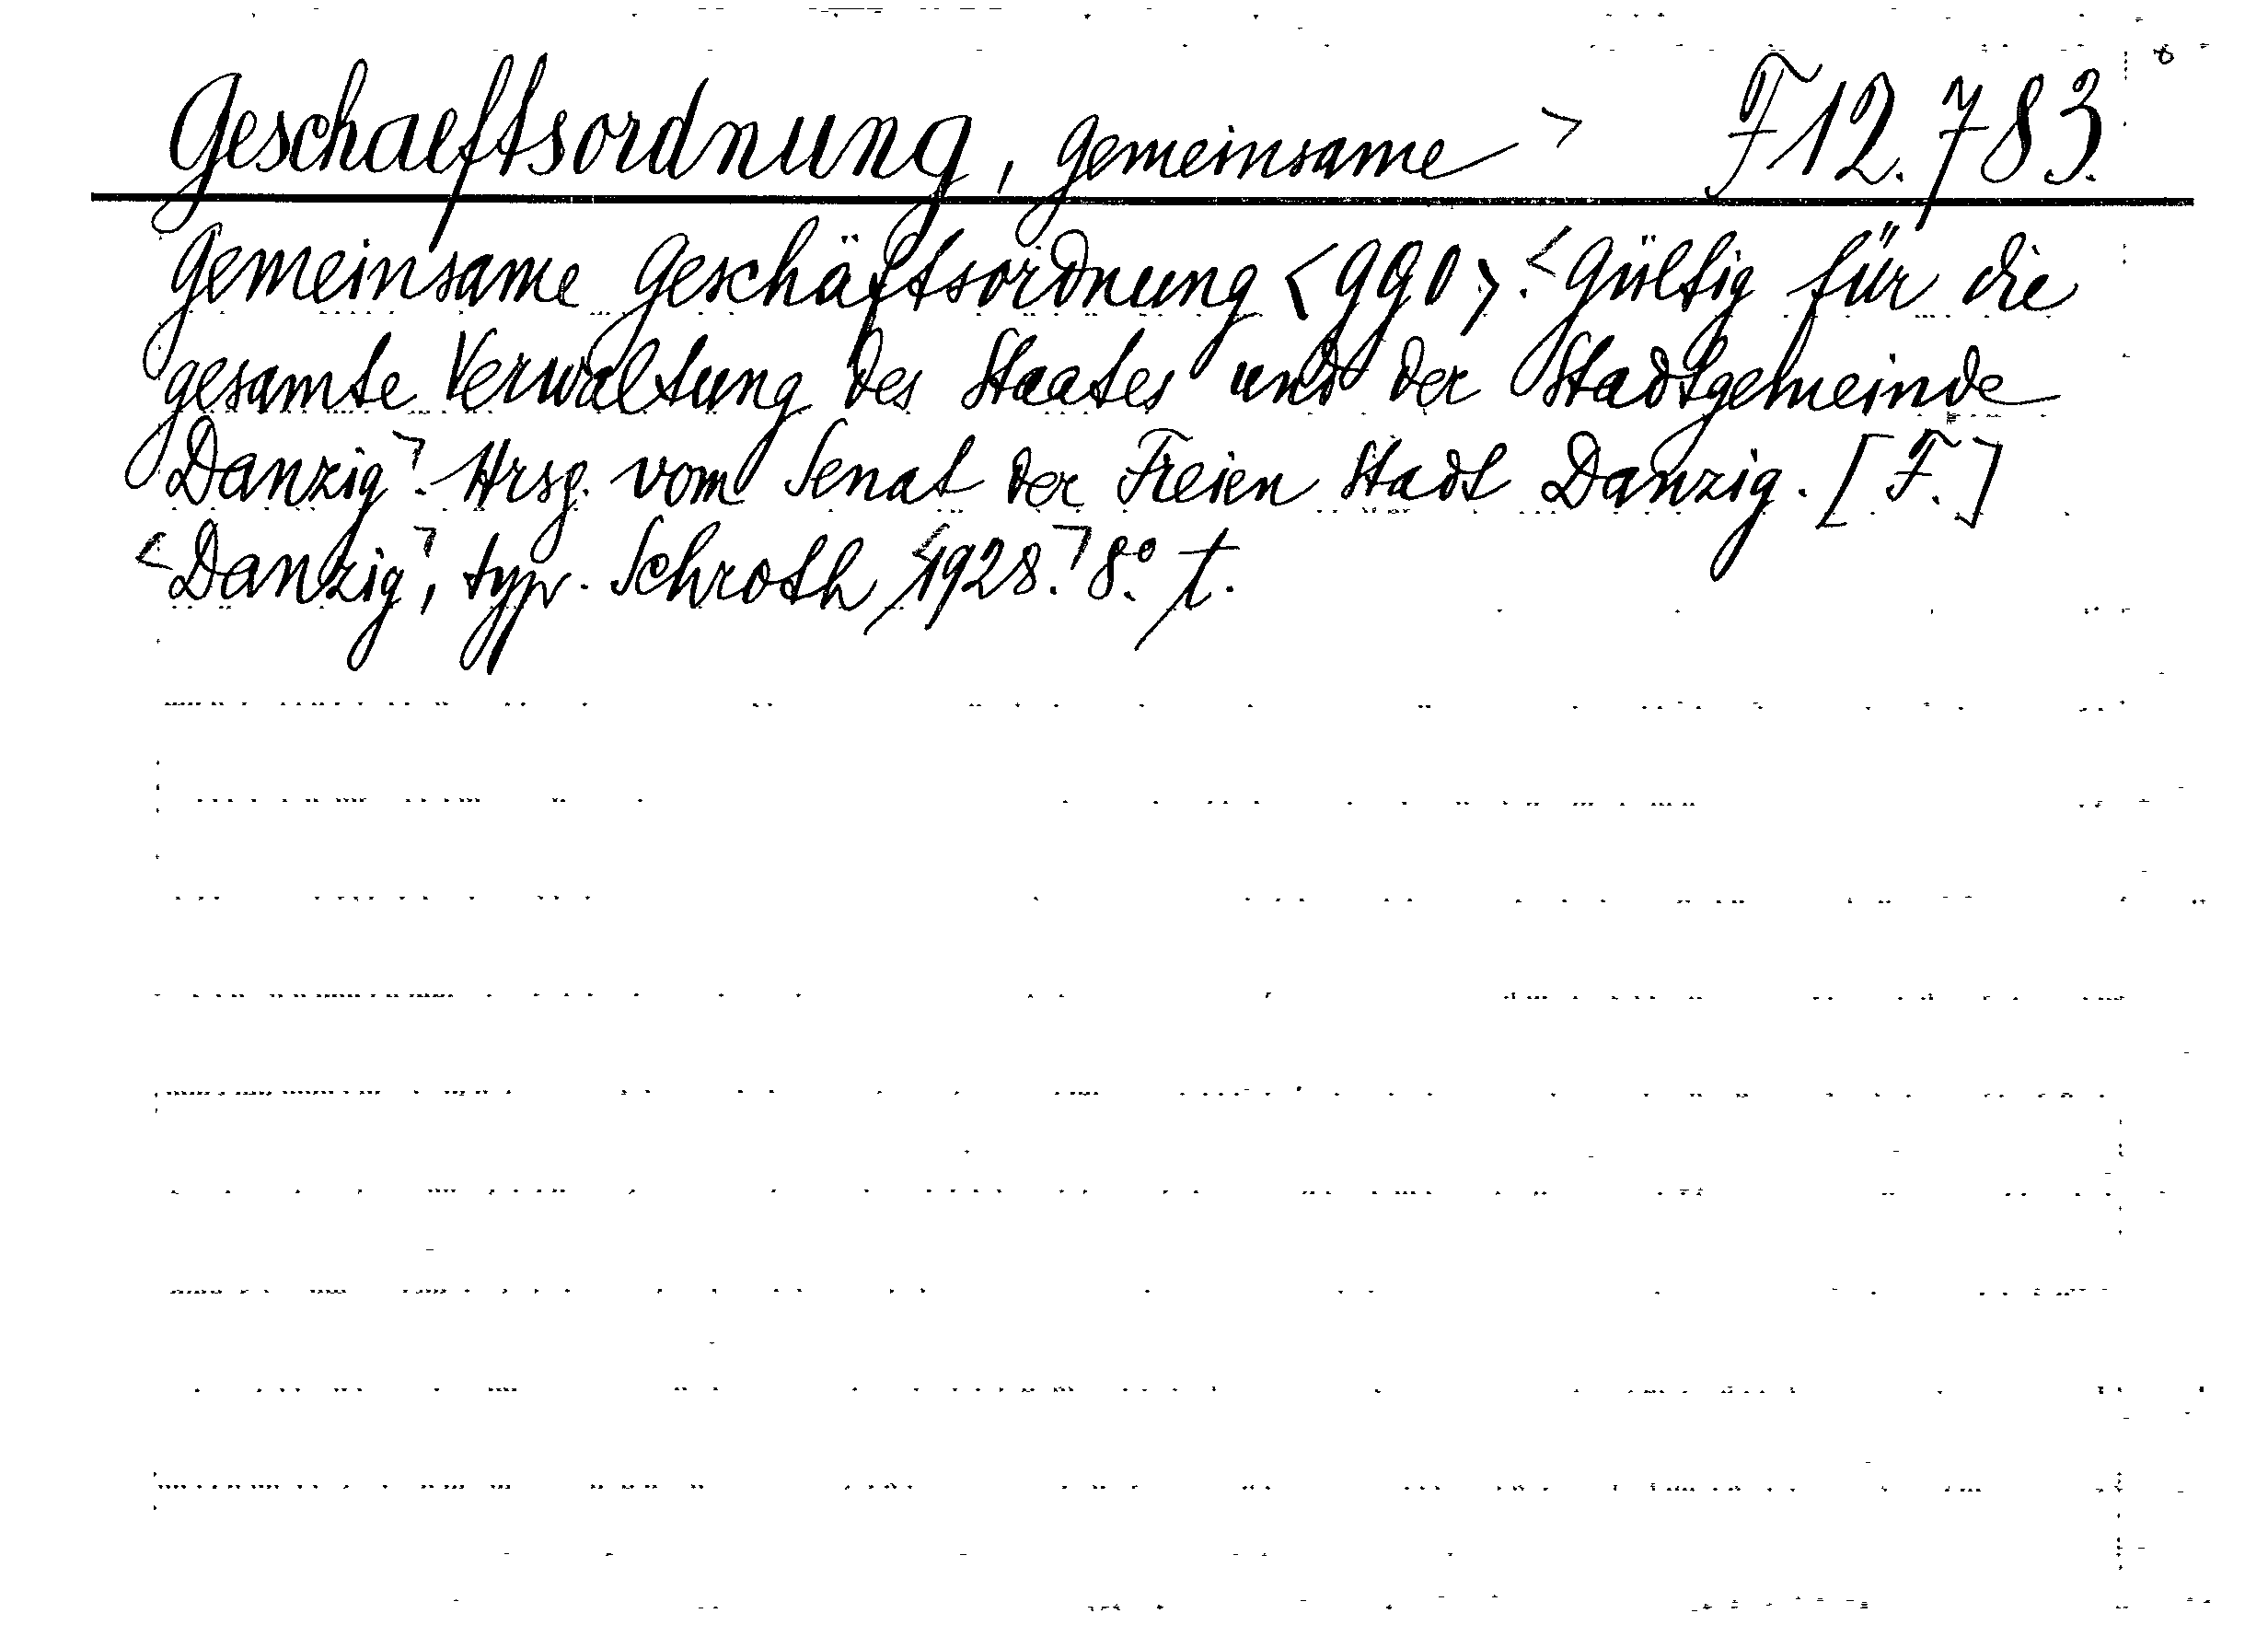 Geschaeftsordnung, gemeinsame > F 12.783.
Gemeinsame Geschäftsordnung <GGO>. <Gültig für die
gesamte Verwaltung des Staates und der Stadtgemeinde
Danzig>. Hrsg. vom Senat der Freien Stadt Danzig. [F.]
<Danzig>, typ. Schroth, <1928.> 8.° t.